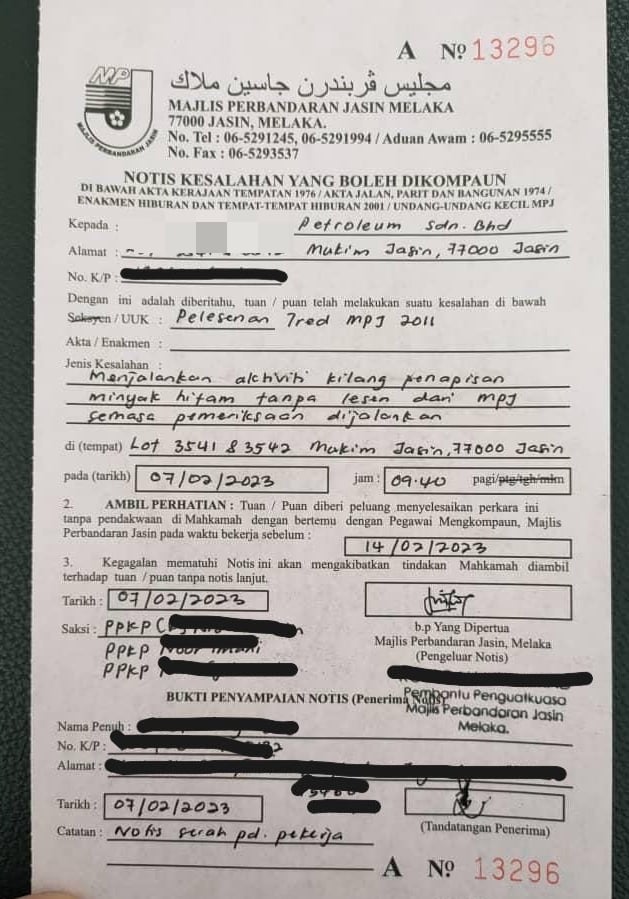 A Nº 13296
MP
MAJLIS PERBANDARAN JASIN
مجليس ڤربندرن جاسين ملاك
MAJLIS PERBANDARAN JASIN MELAKA
77000 JASIN, MELAKA.
No. Tel : 06-5291245, 06-5291994 / Aduan Awam : 06-5295555
No. Fax : 06-5293537
NOTIS KESALAHAN YANG BOLEH DIKOMPAUN
DI BAWAH AKTA KERAJAAN TEMPATAN 1976 / AKTA JALAN, PARIT DAN BANGUNAN 1974 /
ENAKMEN HIBURAN DAN TEMPAT-TEMPAT HIBURAN 2001 / UNDANG-UNDANG KECIL MPJ
Kepada : Petroleum Sdn. Bhd
Alamat : Mukim Jasin, 77000 Jasin
No. K/P :
Dengan ini adalah diberitahu, tuan / puan telah melakukan suatu kesalahan di bawah
Seksyen / UUK : Pelesenan Tred MPJ 2011
Akta / Enakmen :
Jenis Kesalahan :
Menjalankan aktiviti kilang penapisan
minyak hitam tanpa lesen dari MPJ
semasa pemeriksaan dijalankan
di (tempat) Lot 3541 & 3542 Mukim Jasin, 77000 Jasin
pada (tarikh) 07/02/2023 jam : 09.40 pagi/ptg/tgh/mlm
2. AMBIL PERHATIAN : Tuan / Puan diberi peluang menyelesaikan perkara ini
tanpa pendakwaan di Mahkamah dengan bertemu dengan Pegawai Mengkompaun, Majlis
Perbandaran Jasin pada waktu bekerja sebelum :
14/02/2023
3. Kegagalan mematuhi Notis ini akan mengakibatkan tindakan Mahkamah diambil
terhadap tuan / puan tanpa notis lanjut.
Tarikh : 07/02/2023
b.p Yang Dipertua
Majlis Perbandaran Jasin, Melaka
(Pengeluar Notis)
Saksi : PPKP
PPKP
PPKP
Pembantu Penguatkuasa
Majlis Perbandaran Jasin
Melaka.
BUKTI PENYAMPAIAN NOTIS (Penerima Notis)
Nama Penuh :
No. K/P :
Alamat :
Tarikh : 07/02/2023
(Tandatangan Penerima)
Catatan : Notis serah pd. pekerja
A Nº 13296